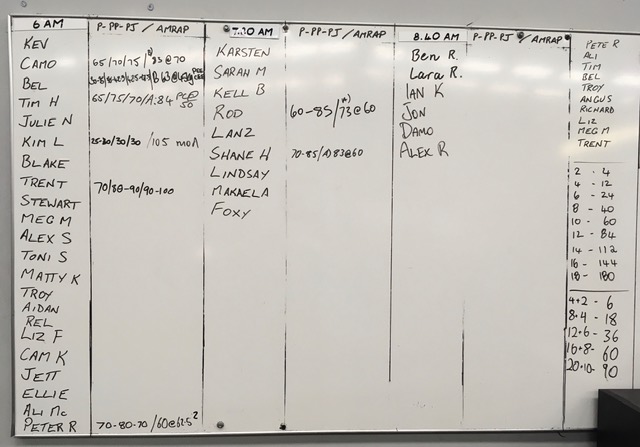 6 AM P-PP-PJ / AMRAP
KEV
CAMO 65/70/75/ 83@70
BEL
TIM H 65/75/70/A:84 PCED 50
JULIE N
KIM L 25-30/30/30 /105 mod
BLAKE
TRENT 70/80-90/90-100
STEWART
MEG M
ALEX S
TONI S
MATTY K
TROY
AIDAN
REL
LIZ F
CAM K
JETT
ELLIE
ALI Mc
PETER R 70-80-70 /60@62.5²
7.30 AM P-PP-PJ / AMRAP
KARSTEN
SARAH M
KELL B
ROD 60-85/A)73@60
LANZ
SHANE H 70-85/A)83@60
LINDSAY
MAKAELA
FOXY
8.40 AM P-PP-PJ / AMRAP
Ben R.
Lara R.
IAN K
JON
DAMO
ALEX R
PETE R
ALI
TIM
BEL
TROY
ANGUS
RICHARD
LIZ
MEG M
TRENT
2 - 4
4 - 12
6 - 24
8 - 40
10 - 60
12 - 84
14 - 112
16 - 144
18 - 180
4+2 - 6
8+4 - 18
12+6 - 36
16+8 - 60
20+10 - 90